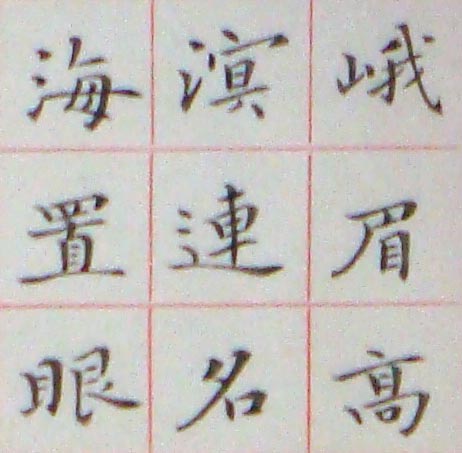 峨眉高
溟連名
海置眼